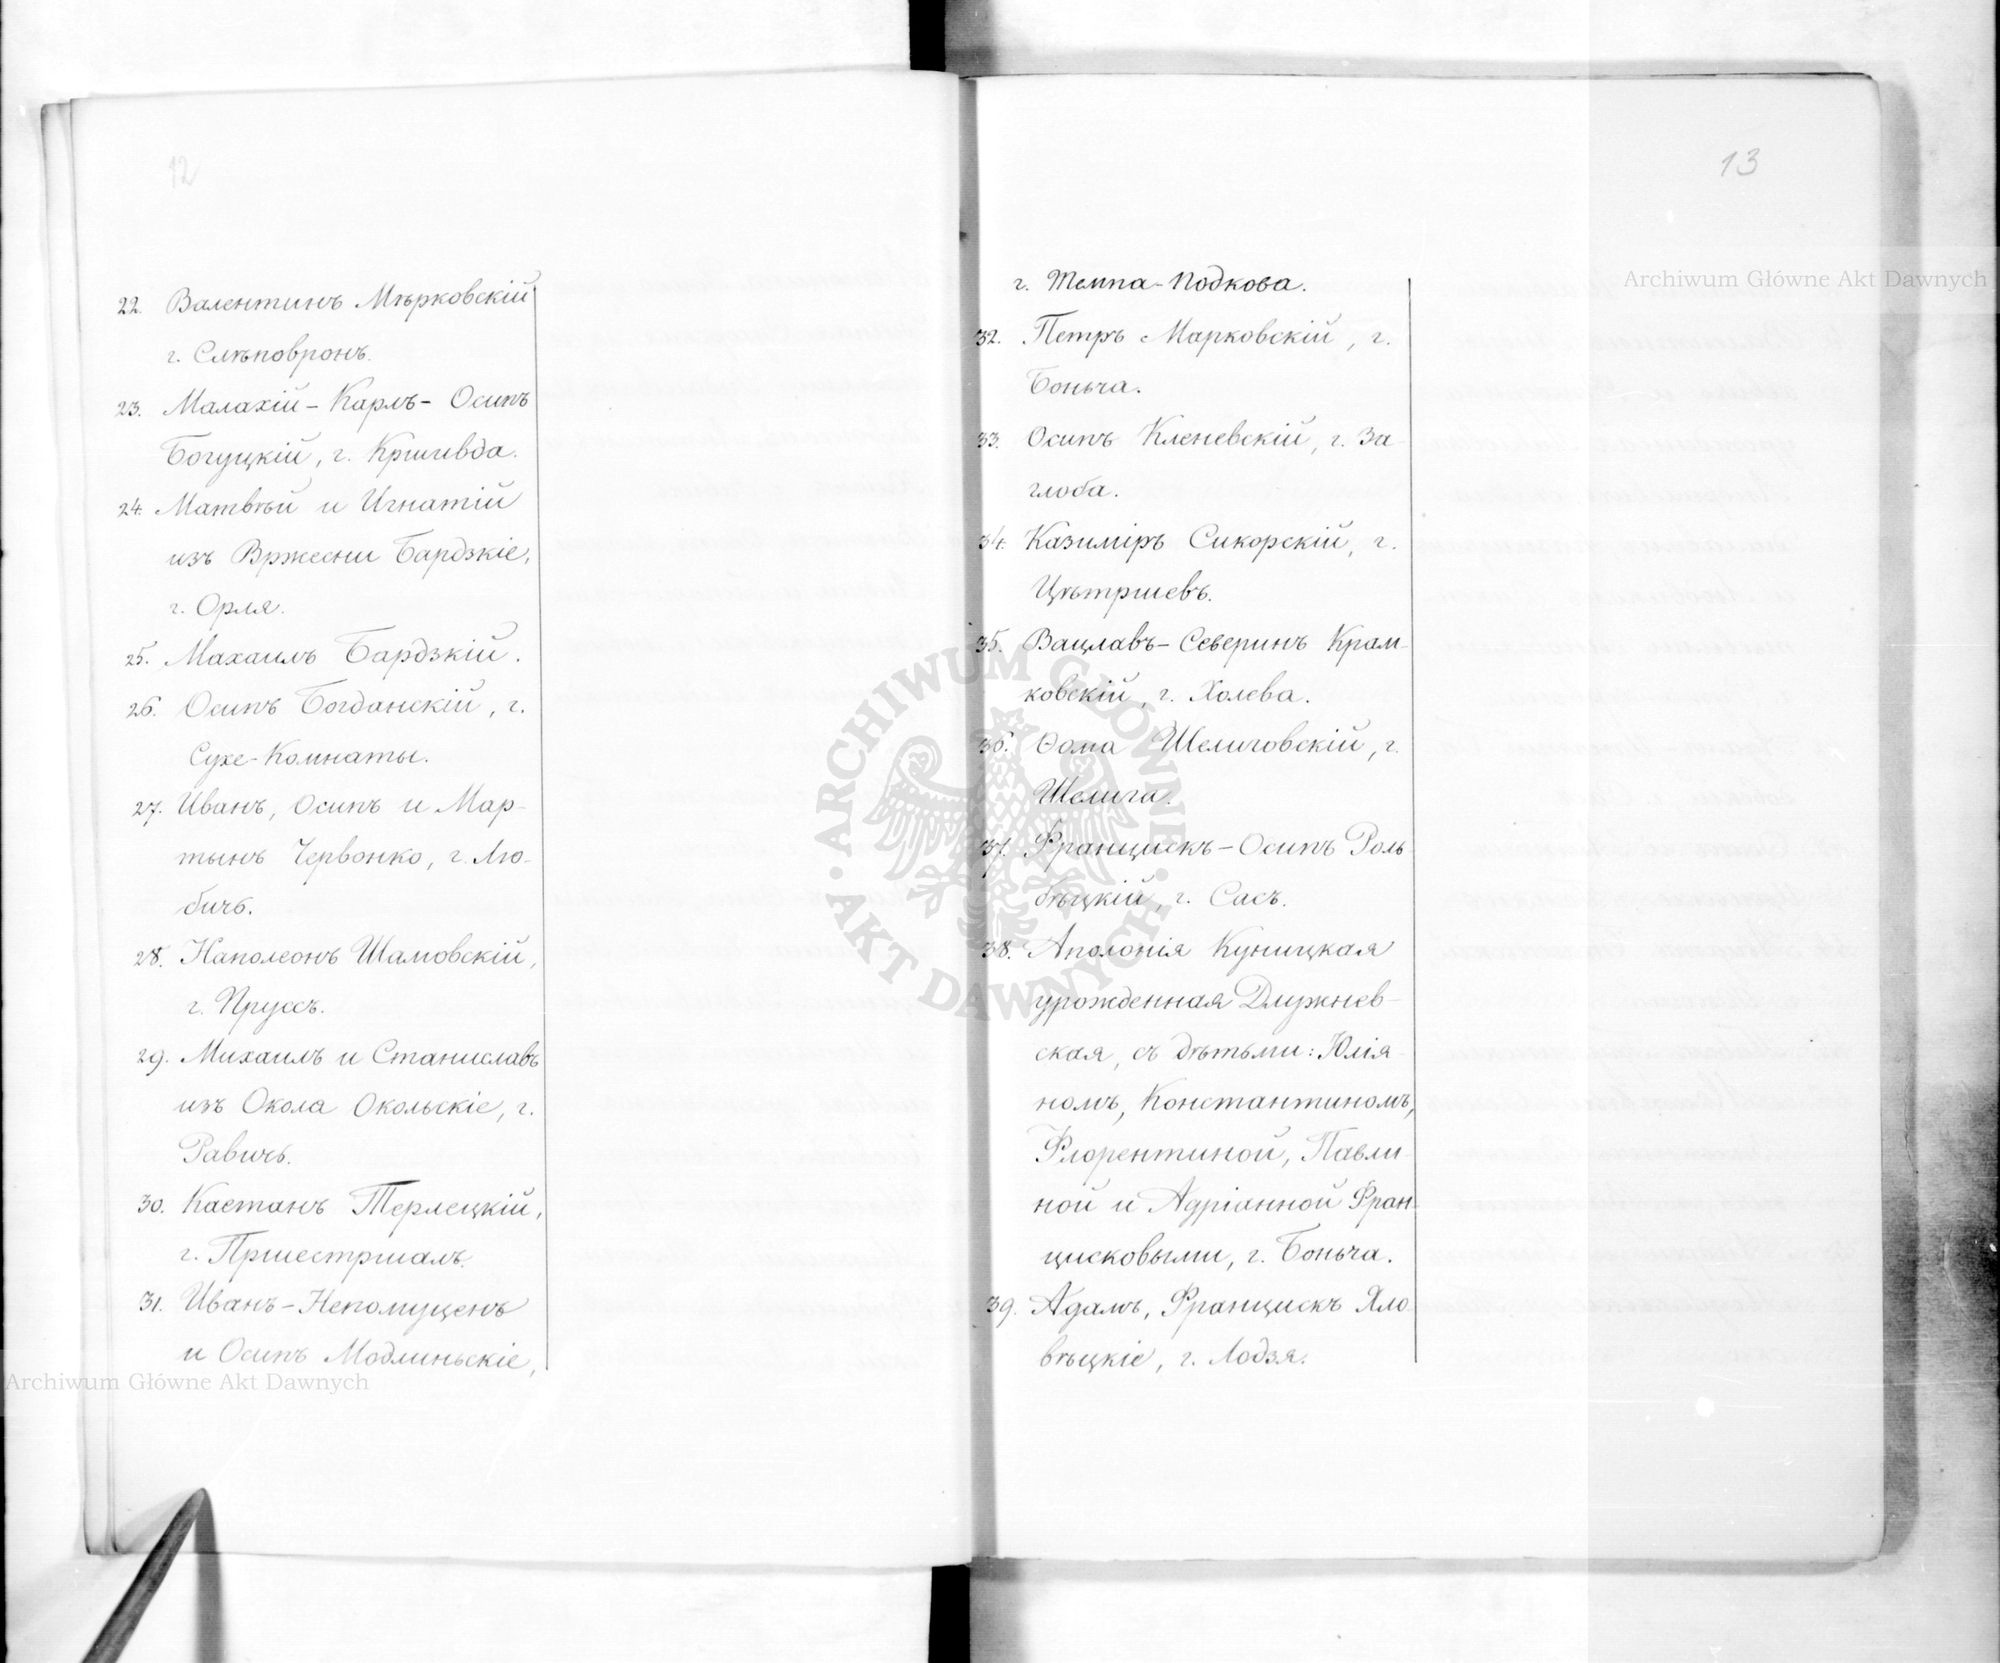 12
22. Валентинъ Мѣрковскій
г. Слѣповронъ.
23. Малахій-Карлъ-Осипъ
Богуцкій, г. Кршивда.
24. Матвѣй и Игнатій
изъ Вржесни Бардзкіе,
г. Орля.
25. Махаилъ Бардзкій.
26. Осипъ Богданскій, г.
Сухе-Комнаты.
27. Иванъ, Осипъ и Мар-
тынъ Червонко, г. Лю-
бичъ.
28. Наполеонъ Шамовскій,
г. Пруссъ.
29. Михаилъ и Станиславъ
изъ Окола Окольскіе, г.
Равичъ.
30. Каетанъ Терлецкій,
г. Пршестршалъ.
31. Иванъ-Непомуценъ
и Осипъ Модлиньскіе,
13
г. Темпа-Подкова.
32. Петръ Марковскій, г.
Боньча.
33. Осипъ Кленевскій, г. За-
глоба.
34. Казиміръ Сикорскій, г.
Цѣтршевъ.
35. Вацлавъ-Северинъ Крам-
ковскій, г. Холева.
36. Ѳома Шелиговскій, г.
Шелига.
37. Францискъ-Осипъ Роль-
бѣцкій, г. Сасъ.
38. Аполонія Куницкая
урожденная Длужнев-
ская, съ дѣтьми: Юлія-
номъ, Константиномъ,
Флорентиной, Павли-
ной и Адріанной Фран-
цисковыми, г. Боньча.
39. Адамъ, Францискъ Яло-
вѣцкіе, г. Лодзя.
Archiwum Główne Akt Dawnych
Archiwum Główne Akt Dawnych
ARCHIWUM GŁÓWNE · AKT DAWNYCH ·